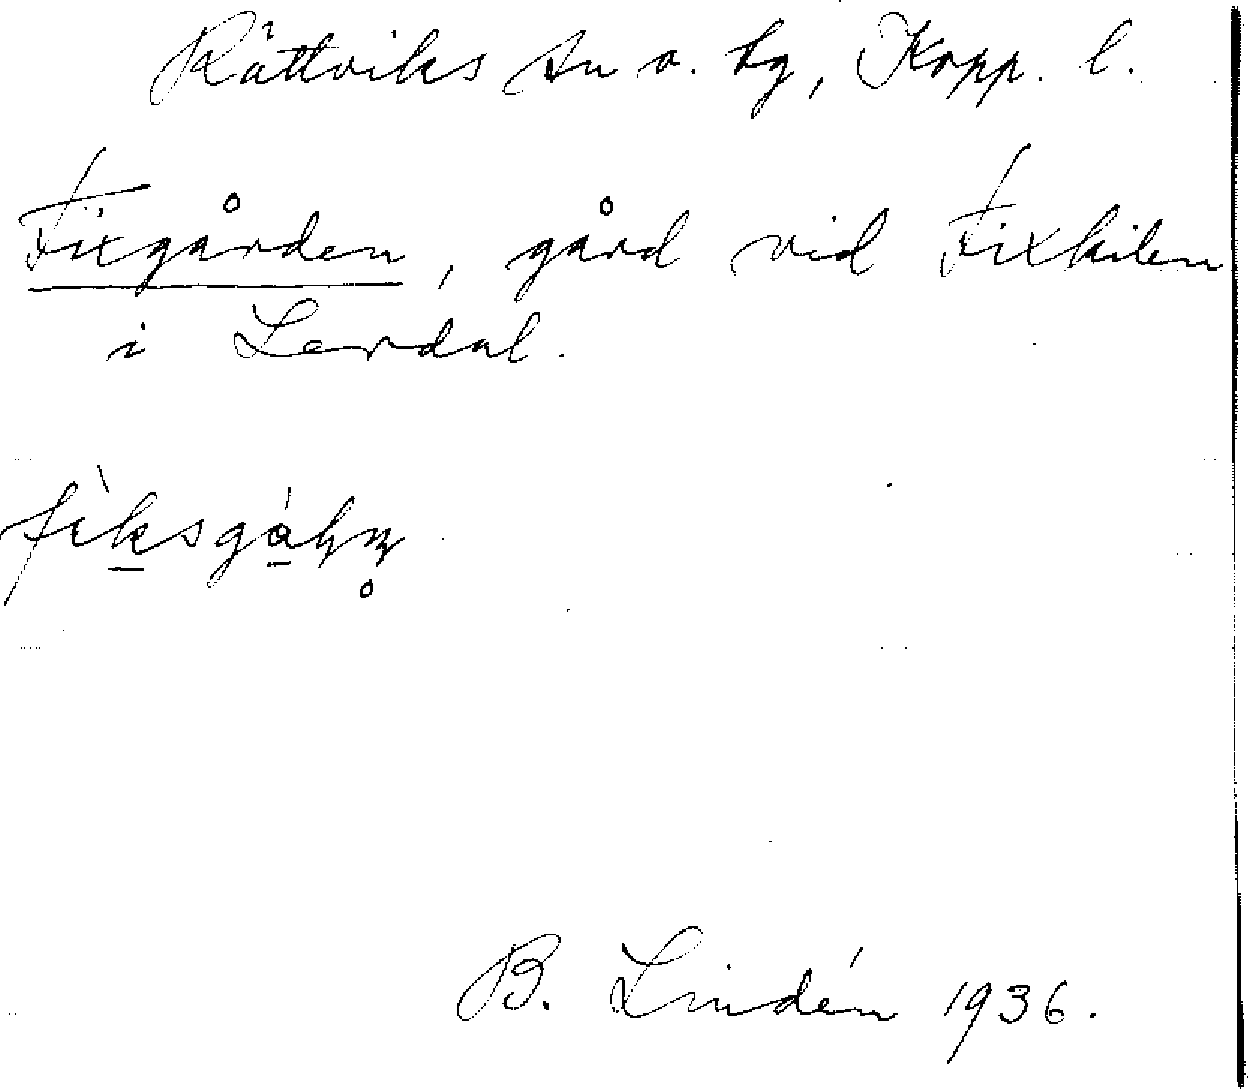 Rättviks sn o. hg, Kopp. l.
Fixgården, gård vid Fixkilen
i Lerdal.
B. Lindén 1936.